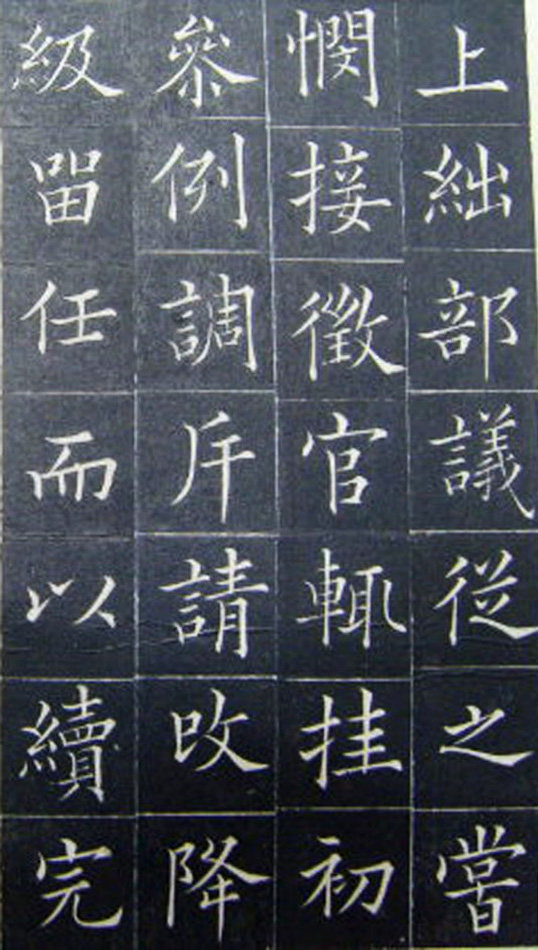 上絀部議従之嘗
憫接徵官輒挂初
叅例調斥請改降
級留任而以續完